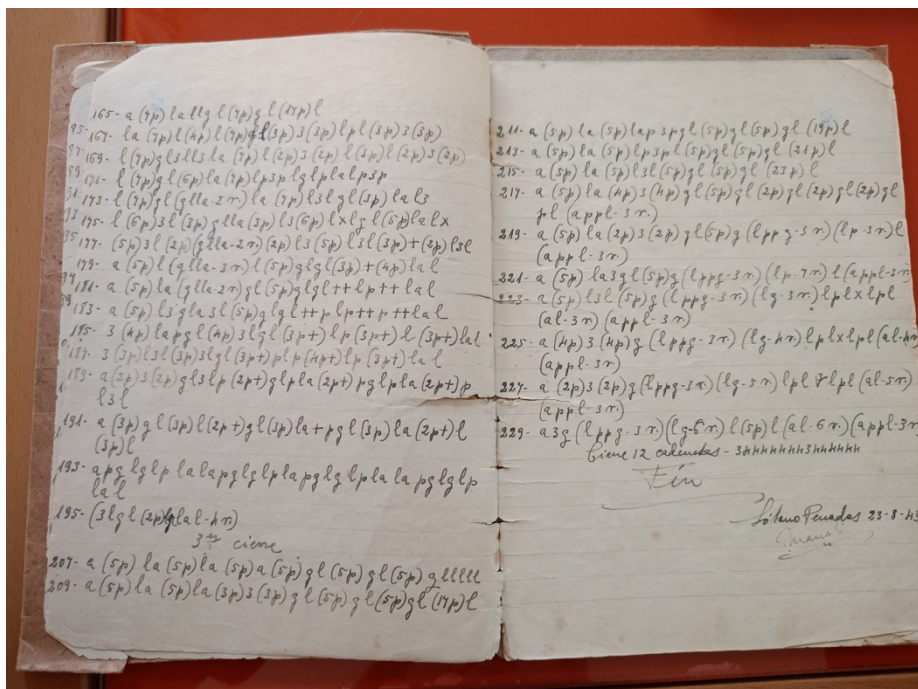 165- a (7p) l a l l g l (7p) g l (17p) l
167- l a (7p) l (4p) l (7p) g l (3p) 3 (3p) l p l (3p) 3 (3p)
169- l (7p) g l 3 l l 3 l a (7p) l (2p) 3 (2p) l (3p) l (2p) 3 (2p)
171- l (7p) g l (6p) l a (7p) l p 3 p l g l p l a l p 3 p
173- l (7p) g l (g l l a - 2 r) l a (7p) l 3 l g l (3p) l a l 3
175- l (6p) 3 l (3p) g l l a (3p) l 3 (6p) l x l g l (5p) l a l x
177- (5p) 3 l (2p) (g l l a - 2 r.) (2p) l 3 (5p) l 3 l (3p) + (2p) l 3 l
179- a (5p) l (g l l a - 3 r) l (5p) g l g l (3p) + (4p) l a l
181- a (5p) l a (g l l a - 2 r) g l (5p) g l g l + + l p + + l a l
183- a (5p) l 3 g l a 3 l (5p) g l g l + + p l p + + p + + l a l
185- 3 (4p) l a p g l (4p) 3 l g l (3p+) l p (3p+) l (3p+) l a l
187- 3 (3p) l 3 l (3p) 3 l g l (3p+) p l p (4p+) l p (3p+) l a l
189- a (2p) 3 (2p) g l 3 l p (2p+) g l p l a (2p+) p g l p l a (2p+) p
l 3 l
191- a (3p) g l (3p) l (2p+) g l (3p) l a + p g l (3p) l a (2p+) l
(3p) l
193- a p g l g l p l a l a p g l g l p l a p g l g l p l a l a p g l g l p
l a l
195- (3 l g l (2p) l a l - 4 r)
3ª cierre
207- a (5p) l a (5p) l a (5p) a (5p) g l (5p) g l (5p) g l l l l l
209- a (5p) l a (5p) l a (3p) 3 (3p) g l (5p) g l (5p) g l (17p) l
211- a (5p) l a (5p) l a p 3 p g l (5p) g l (5p) g l (19p) l
213- a (5p) l a (5p) l p 3 p l (5p) g l (5p) g l (21p) l
215- a (5p) l a (5p) l 3 l (5p) g l (5p) g l (23p) l
217- a (5p) l a (4p) 3 (4p) g l (5p) g l (2p) g l (2p) g l (2p) g l
p l (a p p l - 3 r.)
219- a (5p) l a (2p) 3 (2p) g l (5p) g (l p p g - 3 r) (l p - 3 r) l
(a p p l - 3 r)
221- a (5p) l a 3 g l (5p) g (l p p g - 3 r) (l p - 7 r) l (a p p l - 3 r)
223- a (5p) l 3 l (5p) g (l p p g - 3 r) (l g - 3 r) l p l x l p l
(a l - 3 r) (a p p l - 3 r)
225- a (4p) 3 (4p) g (l p p g - 3 r) (l g - 4 r) l p l x l p l (a l - 4 r)
(a p p l - 3 r)
227- a (2p) 3 (2p) g (l p p g - 3 r) (l g - 5 r) l p l l p l (a l - 5 r)
(a p p l - 3 r.)
229- a 3 g (l p p g - 3 r) (l g - 6 r) l (5p) l (a l - 6 r) (a p p l - 3 r)
Cierre 12 cadenetas -
Fin
Sótano Penadas 23-8-43